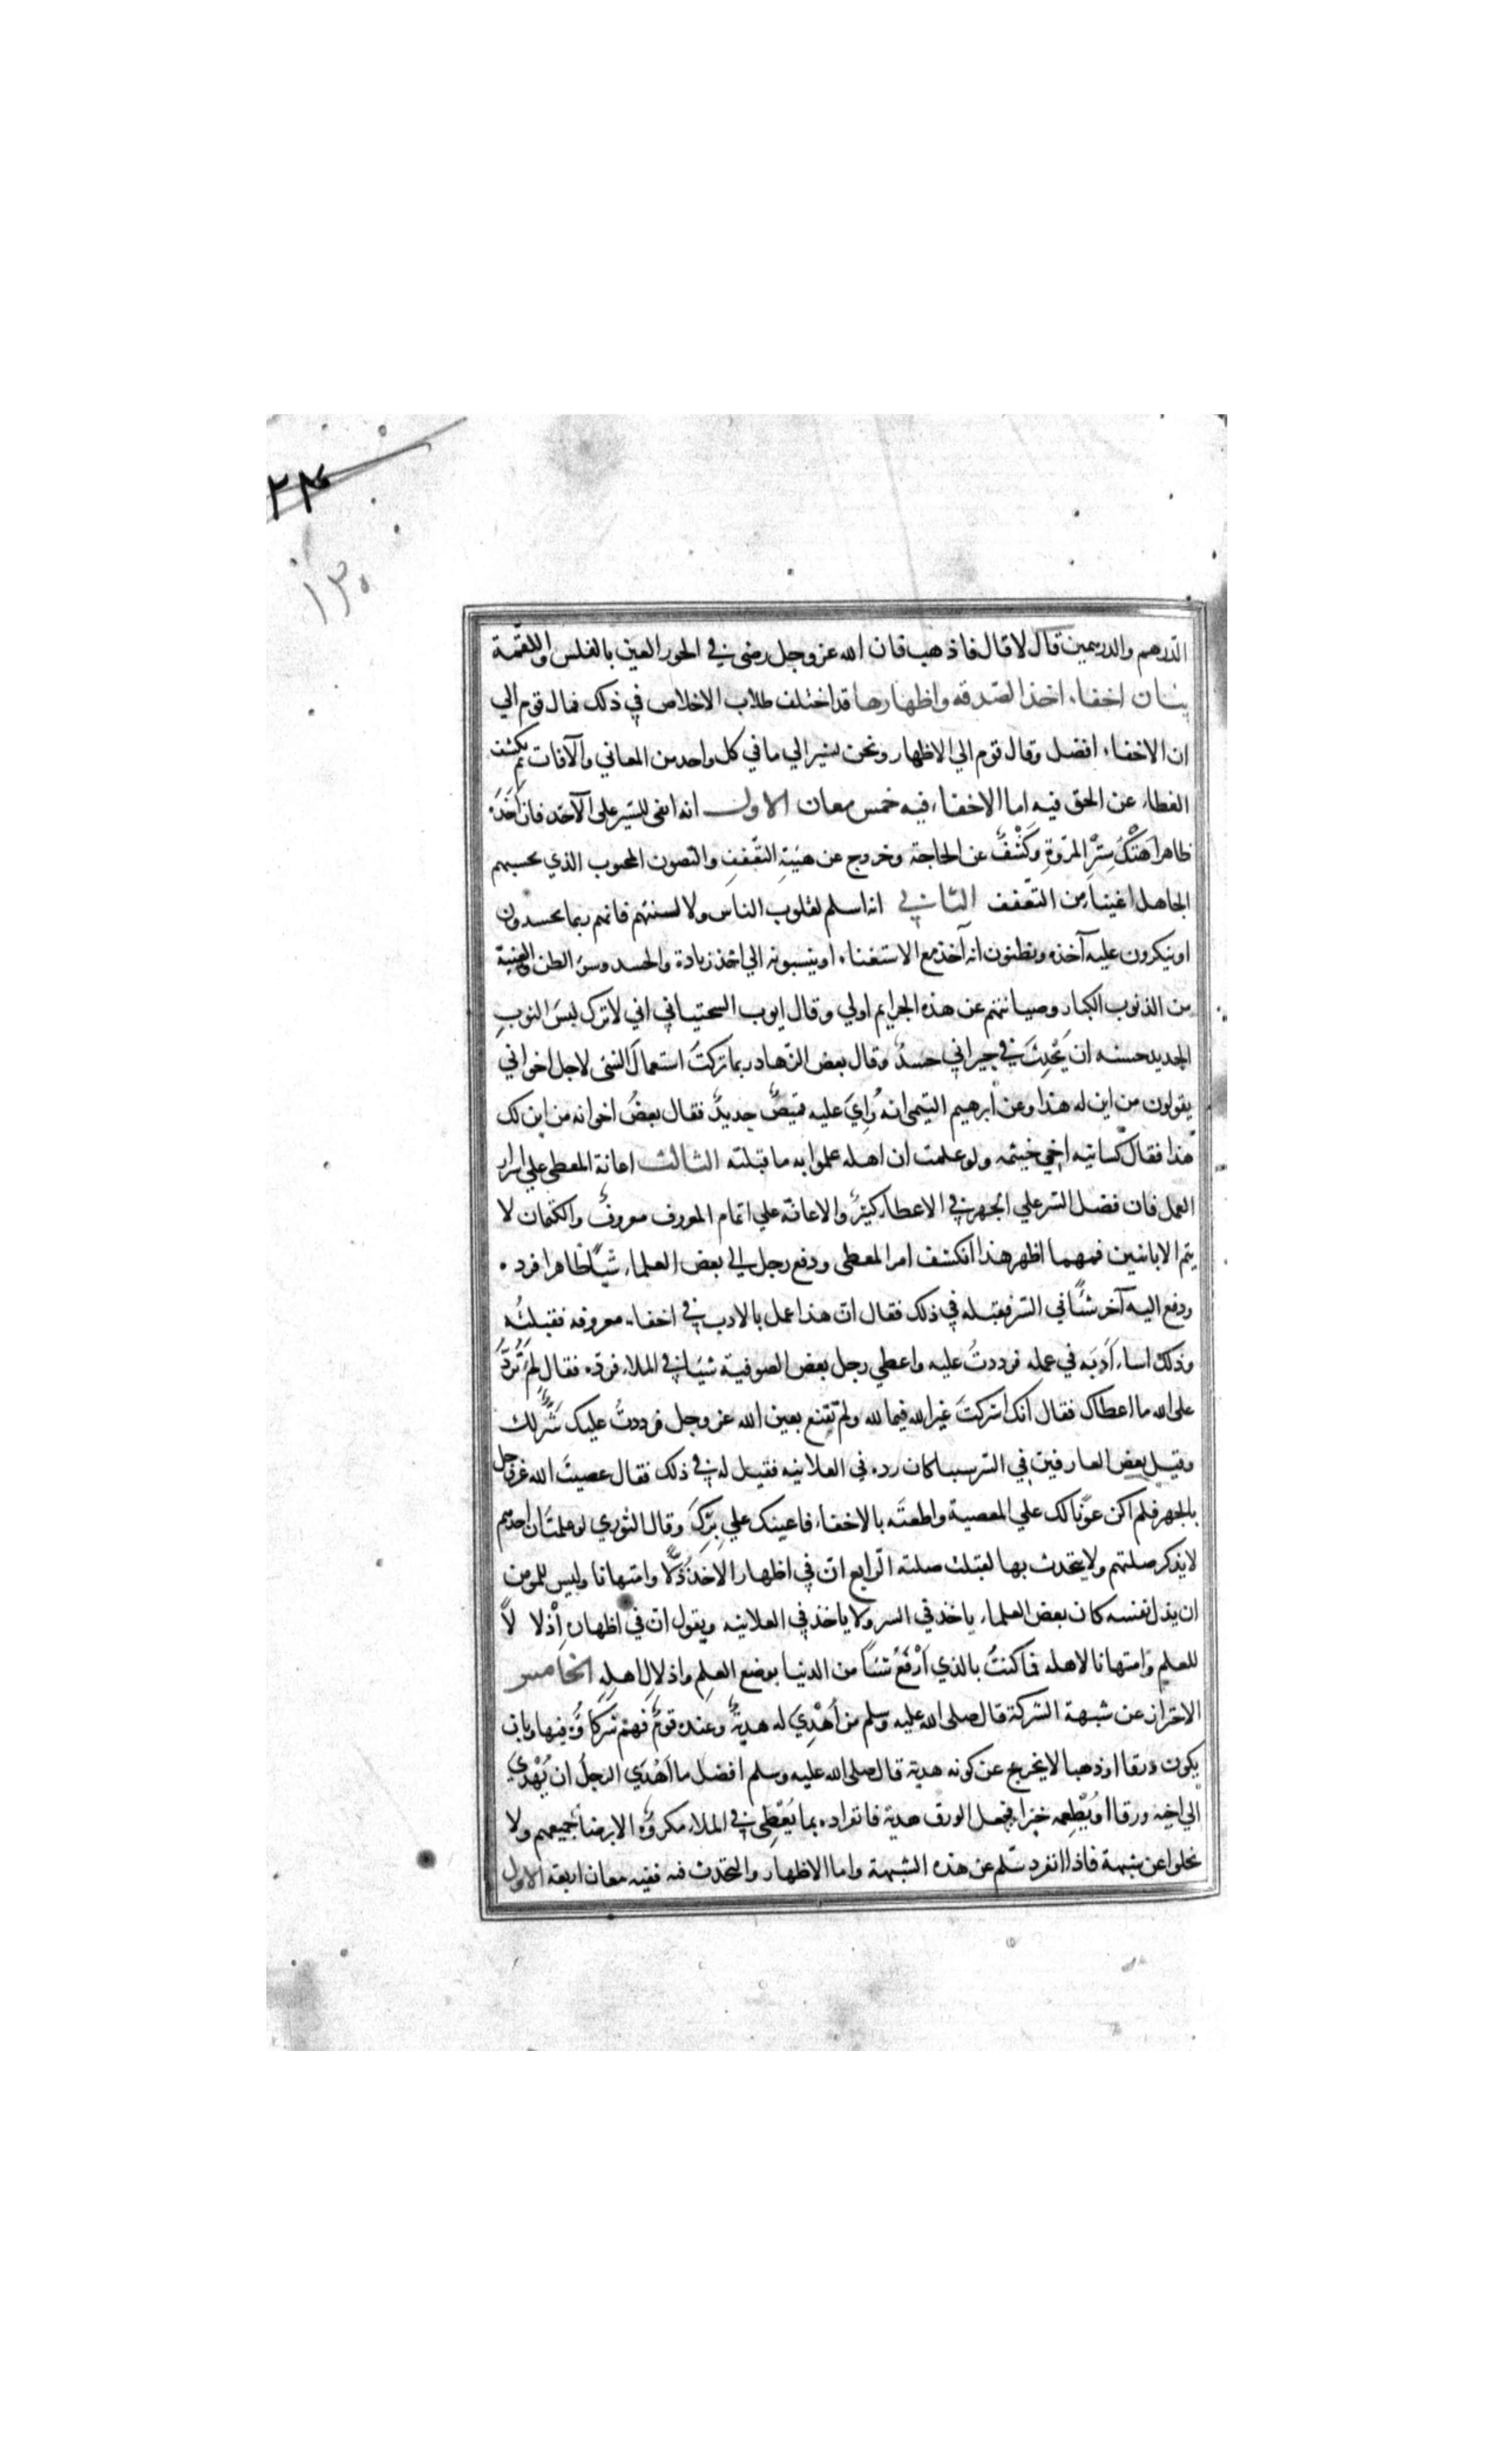 ٢٣
١٣٠
الدرهم والدرهمين قال لا قال فاذهب فان الله عزوجل رضي في الحور العين بالفلس واللقمة
بيان اخفاء اخذ الصدقه واظهارها قد اختلف طلاب الاخلاص في ذلك فمال قوم الي
ان الاخفاء افضل وقال قوم الي الاظهار ونحن نشير الي ما في كل واحد من المعاني والآفات ثم نكشف
الغطاء عن الحق فيه اما الاخفاء فيه خمس معان الاول انه ابقي للستر علي الآخذ فان اخذه
ظاهرا هَتْكُ سِتْرِ المروةِ وكَشْفٌ عن الحاجة وخروج عن هيئة التعفف والتصون المحبوب الذي يحسبهم
الجاهل اغنياء من التعفف الثاني انه اسلم لقلوب الناس ولالسنتهم فانهم ربما يحسدون
او ينكرون عليه آخذه ويظنون انه آخذ مع الاستغناء او ينسبونه الي اخذ زيادة والحسد وسوء الظن والغيبة
من الذنوب الكبار وصيانتهم عن هذه الجرايم اولي وقال ايوب السختياني اني لاترك لبسَ الثوبِ
الجديد خشيه ان يَحْدِثَ في جيراني حسدٌ وقال بعض الزهاد ربما تركتُ استعمالَ الشي لاجل اخواني
يقولون من اين له هذا وعن ابرهيم التيمي انه رُاِيَ عليه قميصٌ جديدٌ فقال بعضُ اخوانه من اين لك
هذا فقال كسانيه اخي خيثمه ولو علمت ان اهله علموا به ما قبلته الثالث اعانة المعطي علي اسرار
العمل فان فضل السر علي الجهر في الاعطاء كثيرٌ والاعانة علي اتمام المعروف معروفٌ والكتمان لا
يتم الا باثنين فمهما اظهر هذا انكشف امر المعطي ودفع رجل الي بعض العلماء شياً ظاهرا فرده
ودفع اليه آخر شئاً في السر فقبله في ذلك فقال ان هذا عمل بالادب في اخفاء معروفه فقبلتُه
وذلك اساء اَدَبَه في عمله فرددتُ عليه واعطي رجل بعض الصوفية شيئا في الملاء فرده فقال لِمَ تَرُدُّ
علي الله ما اعطاك فقال انك اشركتَ غير الله فيما لله ولم تقنع بعين الله عز وجل فرددتُ عليك شركك
وقبل بعض العارفين في السر سببا كان رده في العلانيه فقيل له في ذلك فقال عصيتَ الله عز وجل
بالجهر فلم اكن عونا لك علي المعصية واطعتَه بالاخفاء فاعينك علي بِرِّكَ وقال الثوري لو علمتُ ان احدهم
لا يذكر صلتهم ولا يتحدث بها لقبلت صلته الرابع ان في اظهار الاخذ ذُلًّا وامتهانا وليس للمومن
ان يذل نفسه كان بعض العلماء ياخذ في السر ولا ياخذ في العلانيه ويقول ان في اظهاره اِذْلا لاً
للعلم وامتهانا لاهله فما كنتُ بالذي اَرْفَعُ شئاً من الدنيا بوضع العِلمِ واذلالِ اهلِه الخامس
الاحتراز عن شبهة الشركة قال صلي الله عليه وسلم من اُهْدِيَ له هديةٌ وعنده قومٌ فهم شركاؤه فيها وبان
يكون ورقا او ذهبا لا يخرج عن كونه هدية قال صلي الله عليه وسلم افضل ما اَهْدَي الرجلُ ان يُهْدِيَ
الي اخيه ورقا او يُطْعِمه خبزا فجعل الورق هدية فانفراده بما يُعْطِي في الملاء مكروهٌ الا برضا جميعهم ولا
يخلوا عن شبهة فاذا انفرد سَلِم عن هذه الشبهة واما الاظهار والتحدث به ففيه معان اربعة الاول